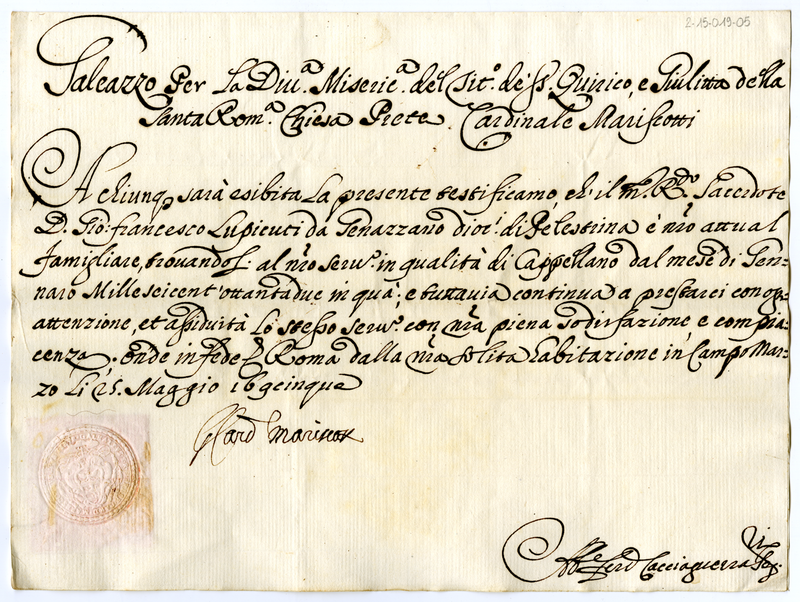 2-15-019-05
Galeazzo Per La Diu.ᵃ Miseric.ᵃ del tit.º de' SS. Quirico, e Giulitta della
Santa Rom.ᵃ Chiesa Prete Cardinale Mariscotti
A chiunq. sarà esibita La presente testificamo, ch' il m.º R.ᵈᵒ Sacerdote
D. Gio: Francesco Lupicuti da Genazzano dioc.ⁱ di Pelestrina è n̄ro attual
famigliare, trovandos. al n̄ro seru.º in qualità di Cappellano dal mese di Gen-
naro Mille seicent'ottantadue in quà; e tuttavia continua a prestarci con ogn'
attenzione, et assiduità Lo stesso seru.º con n̄ra piena sodisfazione, e compia-
cenza. onde in fede &. Roma dalla n̄ra solita habitazione in Campo Mar-
zo Li 25. Maggio 169cinque
Card Mariscotti
Ferd Cacciaguerra Seg.